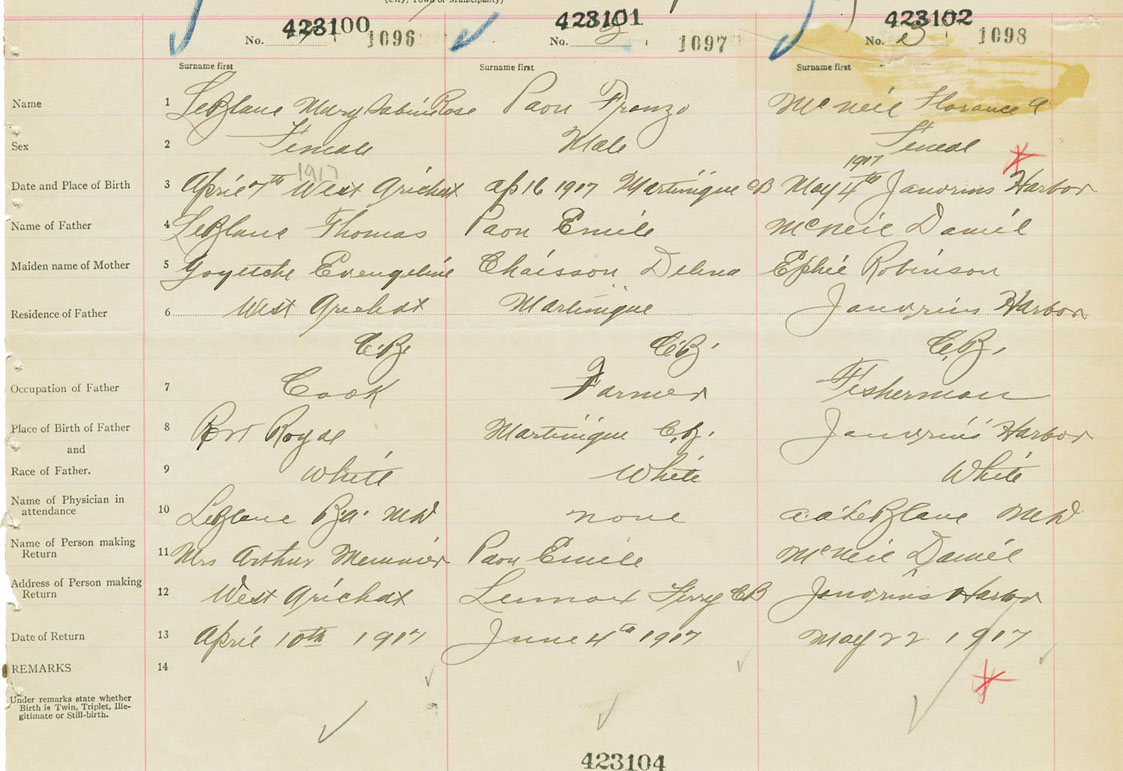 (City, Town or Municipality)
423100 423101 423102
No. 1096 No. 3 1097 No. 1098
Surname first Surname first Surname first
Name 1 LeBlanc Mary Sabine Rose Paon Franzo McNeil Florance A
Sex 2 Female Male Femal
1917 1917
Date and Place of Birth 3 April 7th West Arichat ap 16 1917 Martinique CB May 4th Janvrins Harbor
Name of Father 4 LeBlanc Thomas Paon Emile McNeil Daniel
Maiden name of Mother 5 Goyetche Evengeline Chaisson Delina Ephie Robinson
Residence of Father 6 West Arichat Martinique Janvrins Harbor
C.B. C.B. C.B.
Occupation of Father 7 Cook Farmer Fisherman
Place of Birth of Father 8 Port Royal Martinique C.B. Janvrins Harbor
and
Race of Father. 9 White White White
Name of Physician in
attendance 10 LeBlanc B.A. MD none A.A. LeBlanc MD
Name of Person making
Return 11 Mrs Arthur Paon Emile McNeil Daniel
Address of Person making
Return 12 West Arichat Lennox Ferry CB Janvrins Harbor
Date of Return 13 April 10th 1917 June 4th 1917 May 22 1917
REMARKS 14
Under remarks state whether
Birth is Twin, Triplet, Ille-
gitimate or Still-birth.
423104